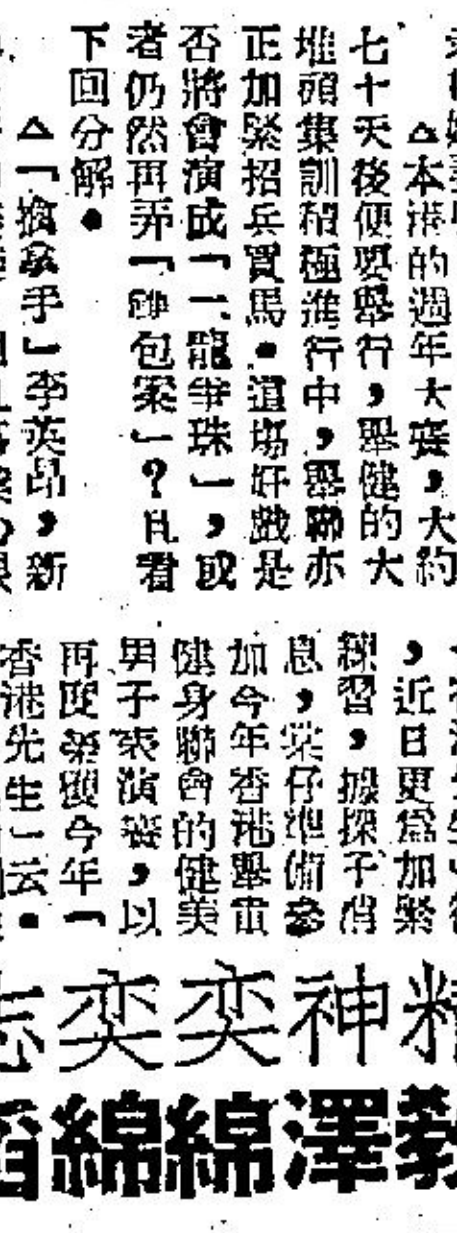 △本港的週年大賽，大約
七十天後便要舉行，舉健的大
堆頭集訓積極進行中，舉聯亦
正加緊招兵買馬。這場好戲是
否將會演成「二龍爭珠」，或
者仍然再弄「鐘包案」？且看
下回分解。
△「擒拿手」李英昂，新
，近日更為加緊
練習，據探子消
息，棠仔準備參
加今年香港舉重
健身聯會的健美
男子表演賽，以
再度榮獲今年「
香港先生」云。
神奕奕
澤綿綿